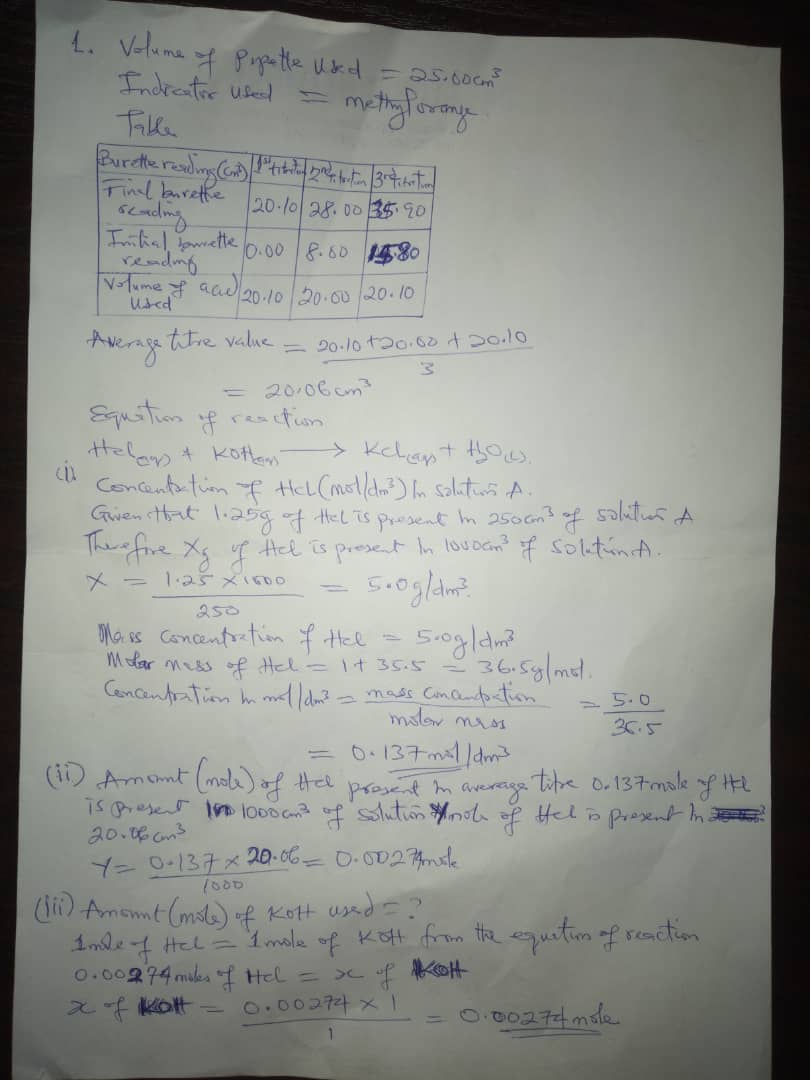 1. Volume of Pipette Used = 25.00cm³
Indicator used = methyl orange.
Table
Burette reading (cm³) | 1st titration | 2nd titration | 3rd titration
Final burette reading | 20.10 | 28.00 | 35.90
Initial burette reading | 0.00 | 8.00 | 15.80
Volume of acid used | 20.10 | 20.00 | 20.10
Average titre value = 20.10 + 20.00 + 20.10
3
= 20.06cm³
Equation of reaction
HCl(aq) + KOH(aq) → KCl(aq) + H2O(l).
(i) Concentration of HCl (mol/dm³) In solution A.
Given that 1.25g of HCl is present in 250cm³ of solution A
Therefore Xg of HCl is present In 1000cm³ of solution A.
X = 1.25 X 1000 = 5.0g/dm³.
250
Mass Concentration of HCl = 5.0g/dm³
Molar mass of HCl = 1 + 35.5 = 36.5g/mol.
Concentration in mol/dm³ = mass Concentration = 5.0
molar mass 36.5
= 0.137mol/dm³
(ii) Amount (mole) of HCl present in average titre 0.137mole of HCl
is present in 1000cm³ of solution Ymole of HCl is present In
20.06cm³
Y = 0.137 × 20.06 = 0.00274mole
1000
(iii) Amount (mole) of KOH used = ?
1mole of HCl = 1mole of KOH from the equation of reaction
0.00274 moles of HCl = x of KOH
x of KOH = 0.00274 × 1 = 0.00274 mole
1